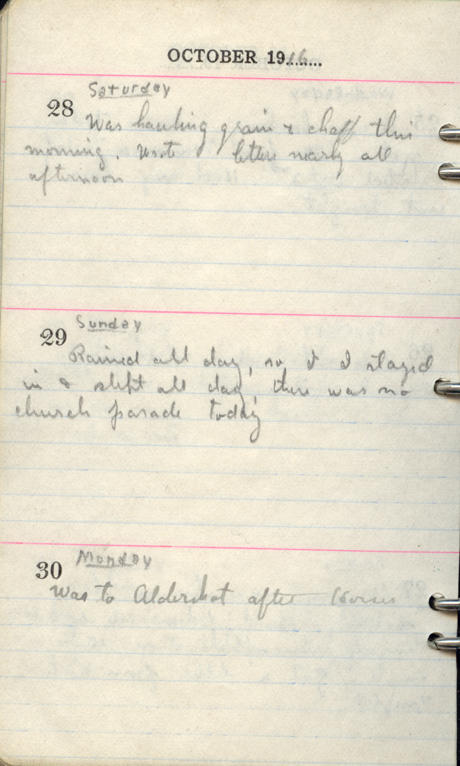 OCTOBER 1916
Saturday
28
Was hauling grain & chaff this
morning. Wrote letters nearly all
afternoon
Sunday
29
Rained all day, so I I stayed
in & slept all day, there was no
church parade today
Monday
30
Was to Aldershot after Horses